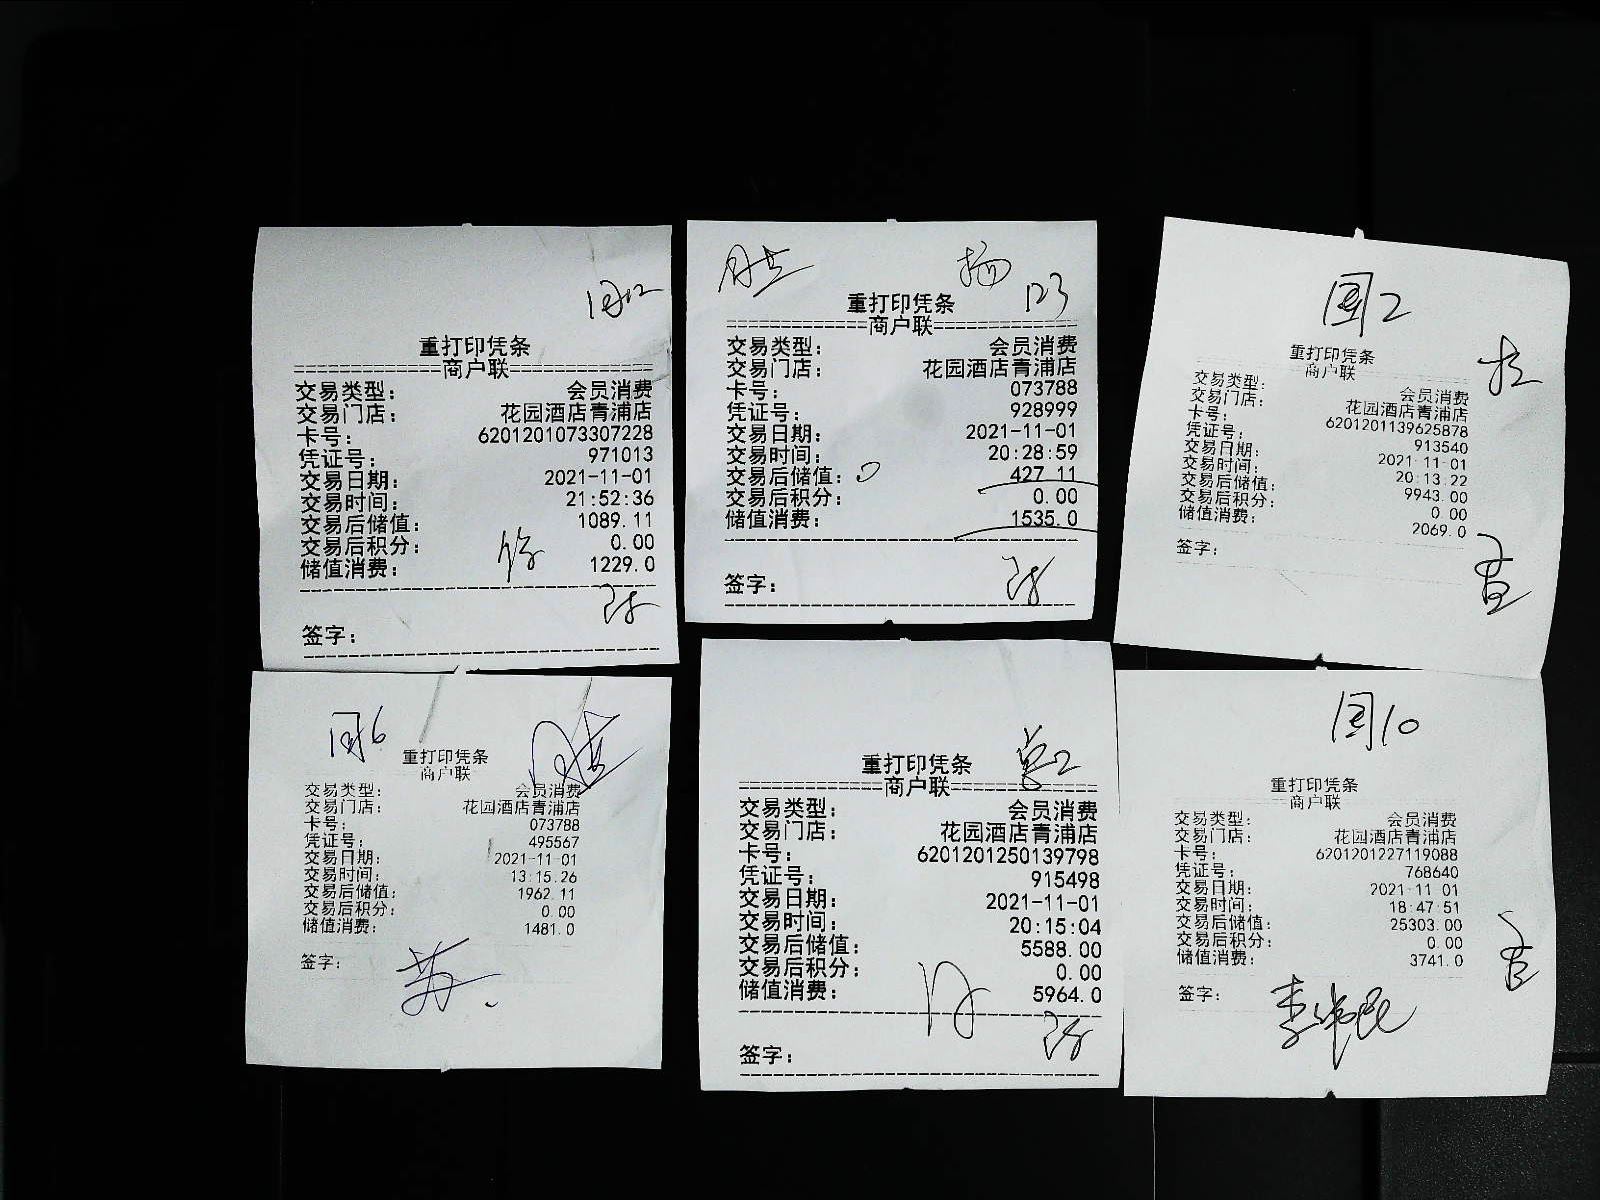 重打印凭条
商户联
交易类型: 会员消费
交易门店: 花园酒店青浦店
卡号: 6201201073307228
凭证号: 971013
交易日期: 2021-11-01
交易时间: 21:52:36
交易后储值: 1089.11
交易后积分: 0.00
储值消费: 1229.0
签字:
杨
123
重打印凭条
商户联
交易类型: 会员消费
交易门店: 花园酒店青浦店
卡号: 073788
凭证号: 928999
交易日期: 2021-11-01
交易时间: 20:28:59
交易后储值: 427.11
交易后积分: 0.00
储值消费: 1535.0
签字:
国2
重打印凭条
商户联
交易类型: 会员消费
交易门店: 花园酒店青浦店
卡号: 6201201139625878
凭证号: 913540
交易日期: 2021-11-01
交易时间: 20:13:22
交易后储值: 9943.00
交易后积分: 0.00
储值消费: 2069.0
签字:
重打印凭条
商户联
交易类型: 会员消费
交易门店: 花园酒店青浦店
卡号: 073788
凭证号: 495567
交易日期: 2021-11-01
交易时间: 13:15:26
交易后储值: 1962.11
交易后积分: 0.00
储值消费: 1481.0
签字:
重打印凭条
商户联
交易类型: 会员消费
交易门店: 花园酒店青浦店
卡号: 6201201250139798
凭证号: 915498
交易日期: 2021-11-01
交易时间: 20:15:04
交易后储值: 5588.00
交易后积分: 0.00
储值消费: 5964.0
签字:
国10
重打印凭条
商户联
交易类型: 会员消费
交易门店: 花园酒店青浦店
卡号: 6201201227119088
凭证号: 768640
交易日期: 2021-11-01
交易时间: 18:47:51
交易后储值: 25303.00
交易后积分: 0.00
储值消费: 3741.0
签字: